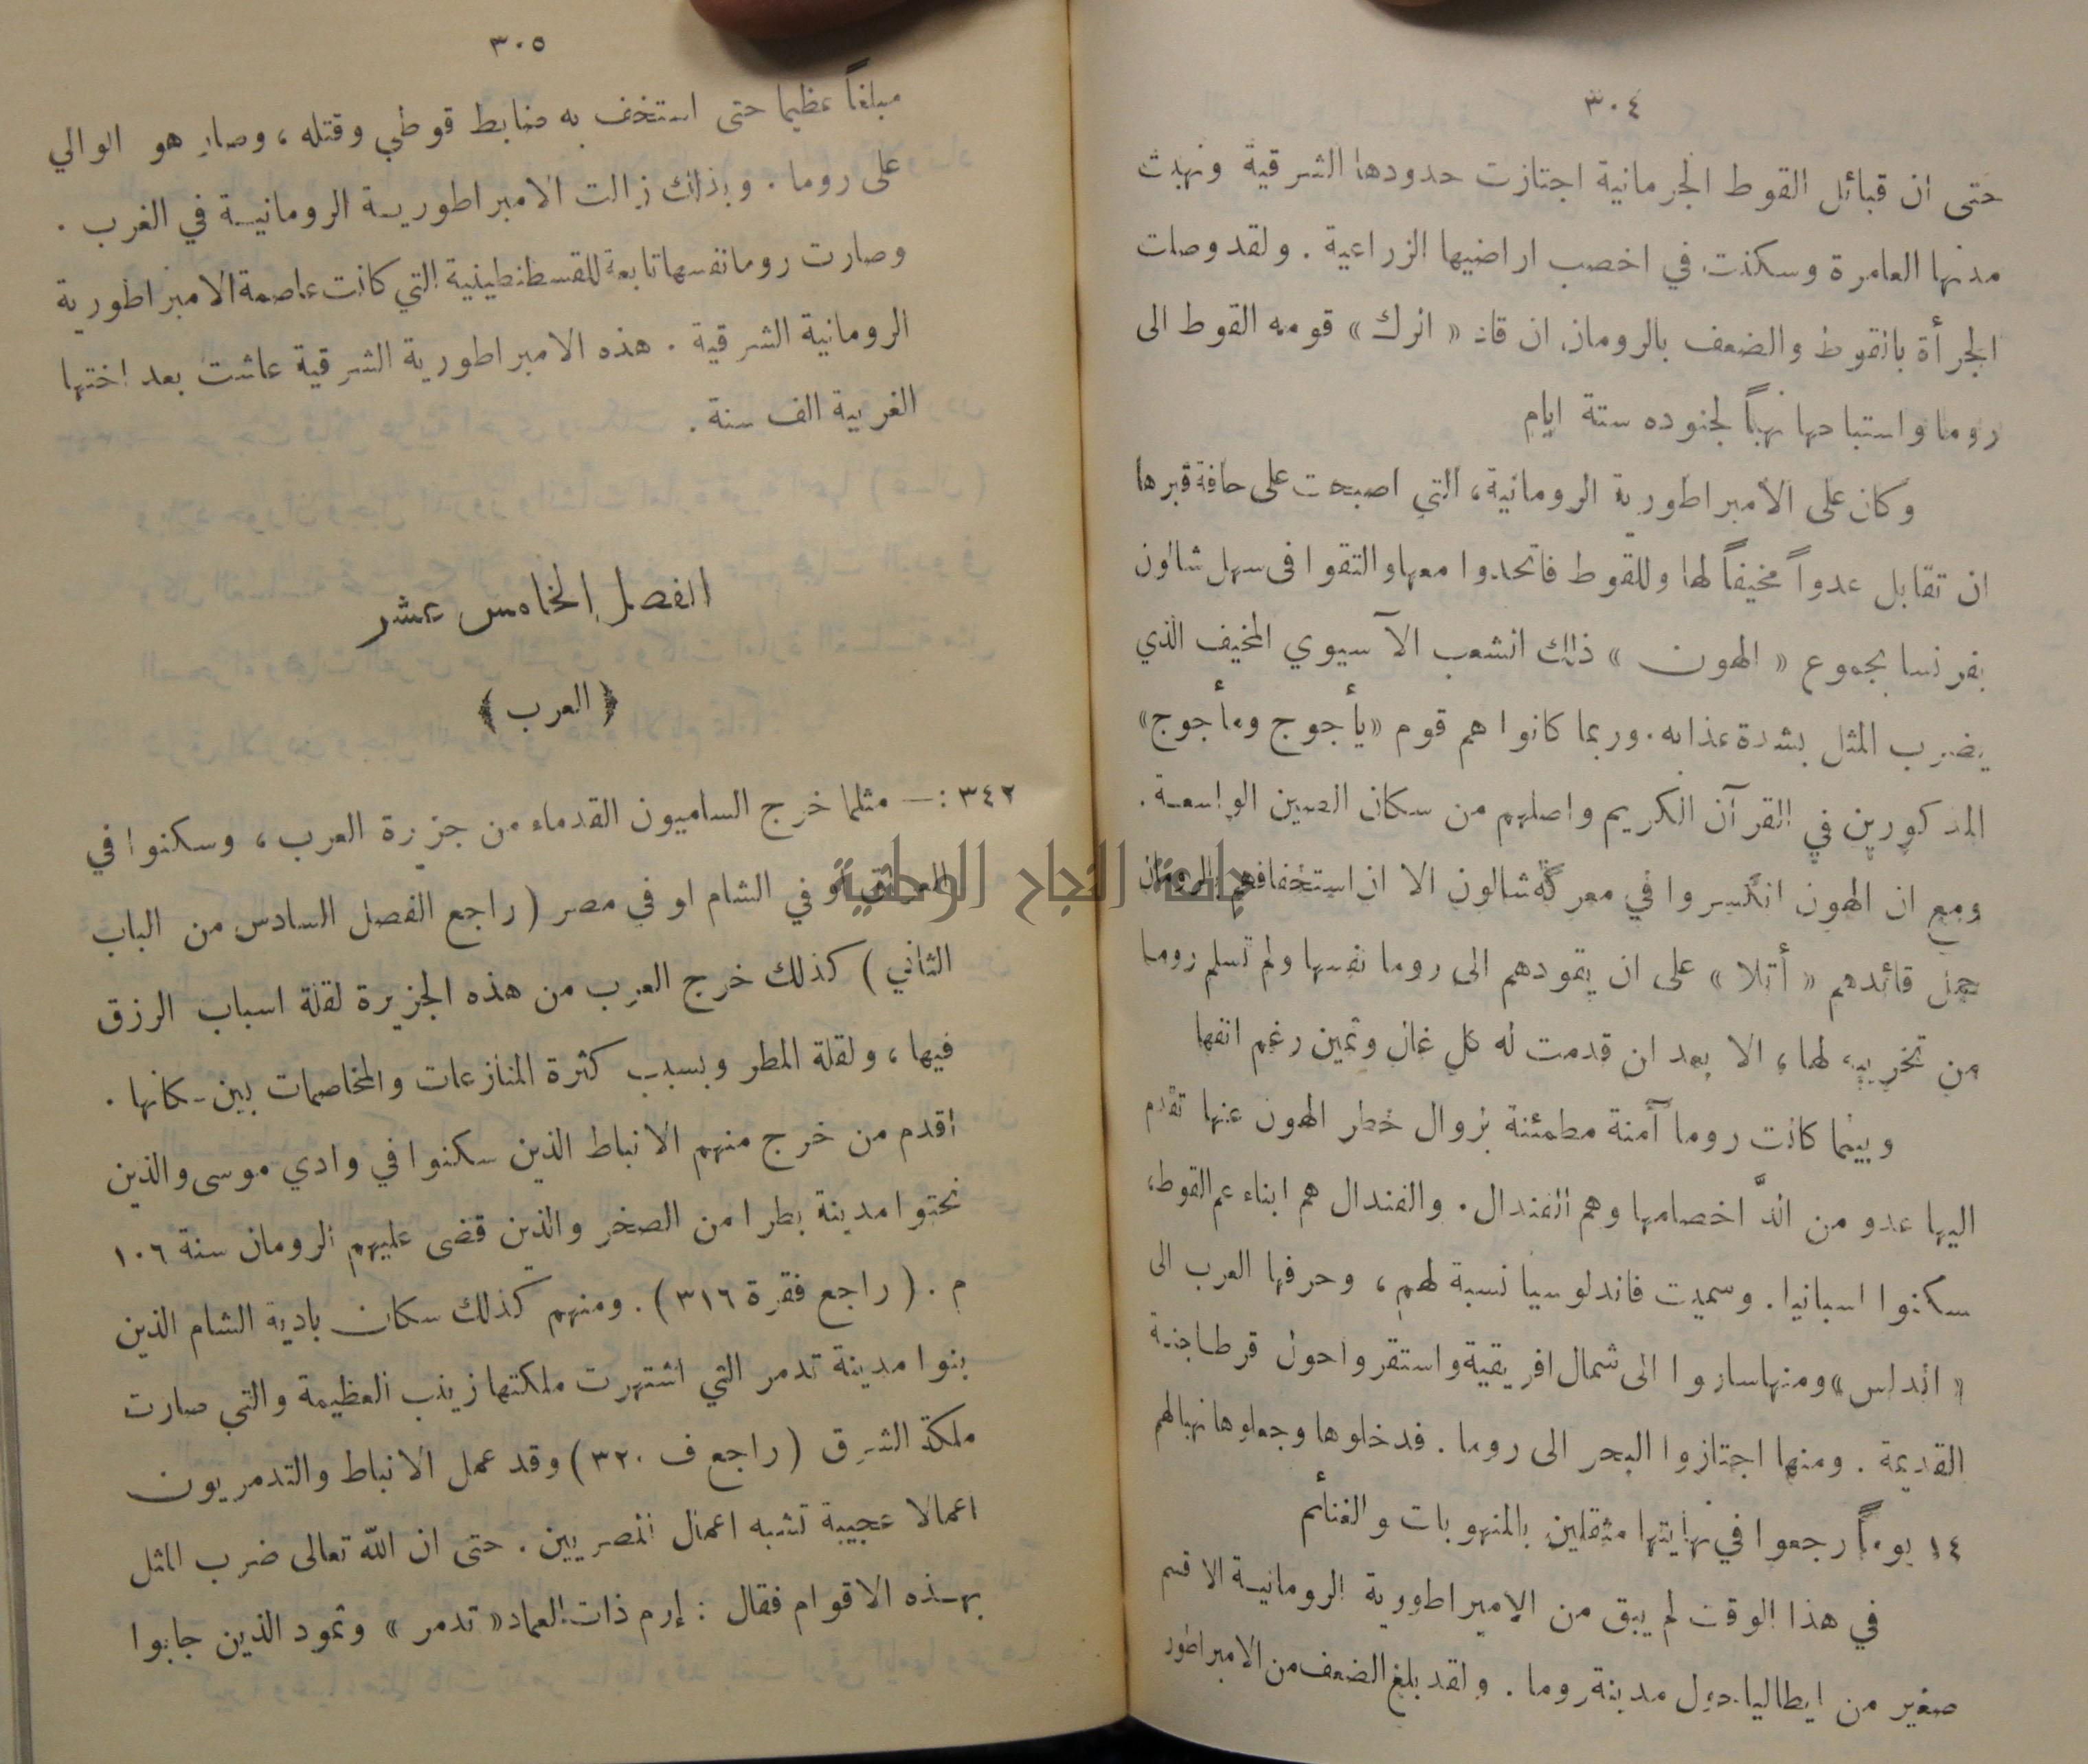 ٣٠٤
حتى ان قبائل القوط الجرمانية اجتازت حدودها الشرقية ونهبت
مدنها العامرة وسكنت في اخصب اراضيها الزراعية . ولقد وصلت
الجرأة بالقوط والضعف بالرومان ان قاد « الرك » قومه القوط الى
روما واستباحها نهباً لجنوده ستة ايام
وكان على الامبراطورية الرومانية، التي اصبحت على حافة قبرها
ان تقابل عدواً مخيفاً لها وللقوط فاتحدوا معها والتقوا في سهل شالون
بفرنسا بجموع « الهون » ذلك الشعب الآسيوي المخيف الذي
يضرب المثل بشدة عذابه. وربما كانوا هم قوم «يأجوج ومأجوج»
المذكورين في القرآن الكريم واصلهم من سكان الصين الواسعة .
ومع ان الهون انكسروا في معركة شالون الا ان استخفافهم بالرومان
حمل قائدهم « أتلا » على ان يقودهم الى روما نفسها ولم تسلم روما
من تخريبه لها، الا بعد ان قدمت له كل غال وثمين رغم انفها
وبينما كانت روما آمنة مطمئنة بزوال خطر الهون عنها تقدم
اليها عدو من الدّ اخصامها وهم الفندال. والفندال هم ابناء عم القوط،
سكنوا اسبانيا. وسميت فاندلوسيا نسبة لهم ، وحرفها العرب الى
« اندلس» ومنها ساروا الى شمال افريقية واستقروا حول قرطاجنة
القديمة . ومنها اجتازوا البحر الى روما . فدخلوها وجعلوها نهبا لهم
١٤ يوماً رجعوا في نهايتها مثقلين بالمنهوبات والغنائم
في هذا الوقت لم يبق من الامبراطورية الرومانية الا قسم
صغير من ايطاليا حول مدينة روما . ولقد بلغ الضعف من الامبراطور
٣٠٥
مبلغاً عظيما حتى استخف به ضابط قوطي وقتله ، وصار هو الوالي
على روما . وبذلك زالت الامبراطورية الرومانية في الغرب .
وصارت روما نفسها تابعة للقسطنطينية التي كانت عاصمة الامبراطورية
الرومانية الشرقية . هذه الامبراطورية الشرقية عاشت بعد اختها
الغربية الف سنة .
الفصل الخامس عشر
﴿ العرب ﴾
٣٤٢ :— مثلما خرج الساميون القدماء من جزيرة العرب ، وسكنوا في
العراق او في الشام او في مصر ( راجع الفصل السادس من الباب
الثاني ) كذلك خرج العرب من هذه الجزيرة لقلة اسباب الرزق
فيها ، ولقلة المطر وبسبب كثرة المنازعات والمخاصمات بين سكانها .
اقدم من خرج منهم الانباط الذين سكنوا في وادي موسى والذين
نحتوا مدينة بطرا من الصخر والذين قضى عليهم الرومان سنة ١٠٦
م . ( راجع فقرة ٣١٦ ) . ومنهم كذلك سكان بادية الشام الذين
بنوا مدينة تدمر التي اشتهرت ملكتها زينب العظيمة والتي صارت
ملكة الشرق ( راجع ف ٣٢٠ ) وقد عمل الانباط والتدمريون
اعمالا عجيبة تشبه اعمال المصريين . حتى ان الله تعالى ضرب المثل
بهذه الاقوام فقال : إرم ذات العماد « تدمر » وثمود الذين جابوا
جامعة النجاح الوطنية